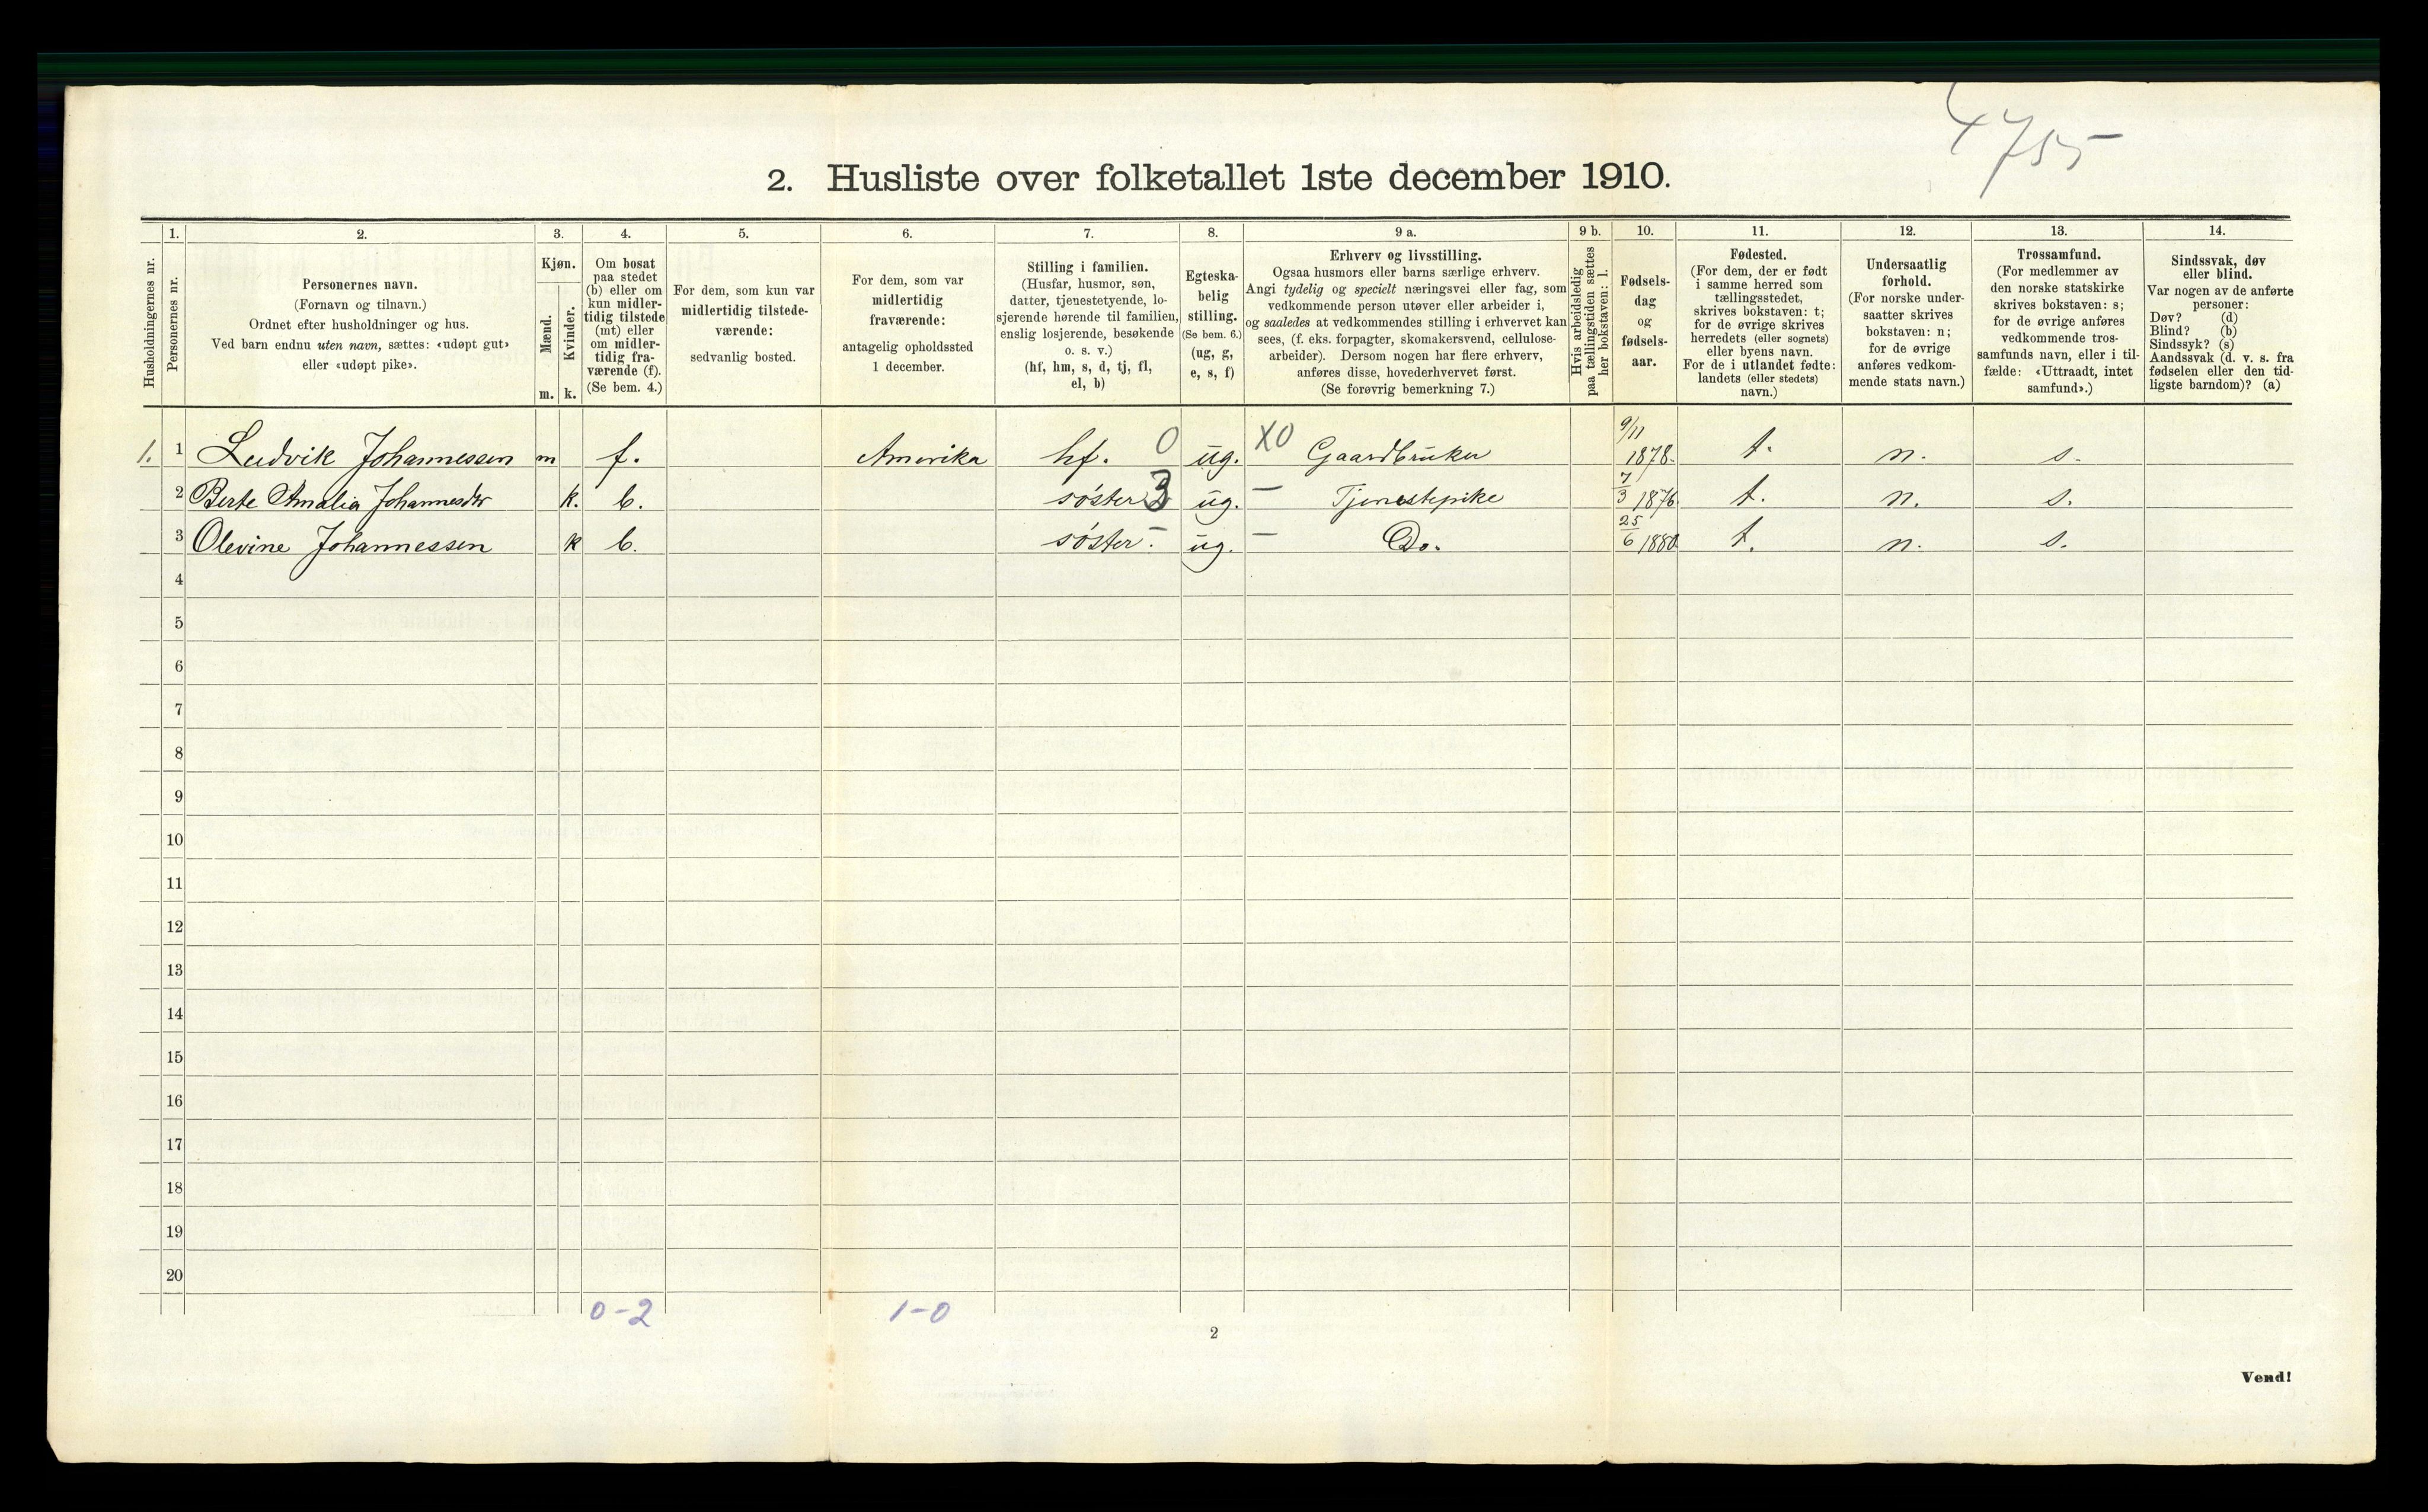 4755
2. Husliste over folketallet 1ste december 1910.
Husholdningernes nr.
1.
Personernes nr.
2.
Personernes navn.
(Fornavn og tilnavn.)
Ordnet efter husholdninger og hus.
Ved barn endnu uten navn, sættes: «udøpt gut»
eller «udøpt pike».
3.
Kjøn.
Mænd.
Kvinder.
m. k.
4.
Om bosat
paa stedet
(b) eller om
kun midler-
tidig tilstede
(mt) eller
om midler-
tidig fra-
værende (f).
(Se bem. 4.)
5.
For dem, som kun var
midlertidig tilstede-
værende:
sedvanlig bosted.
6.
For dem, som var
midlertidig
fraværende:
antagelig opholdssted
1 december.
7.
Stilling i familien.
(Husfar, husmor, søn,
datter, tjenestetyende, lo-
sjerende hørende til familien,
enslig losjerende, besøkende
o. s. v.)
(hf, hm, s, d, tj, fl,
el, b)
8.
Egteska-
belig
stilling.
(Se bem. 6.)
(ug, g,
e, s, f)
9 a.
Erhverv og livsstilling.
Ogsaa husmors eller barns særlige erhverv.
Angi tydelig og specielt næringsvei eller fag, som
vedkommende person utøver eller arbeider i,
og saaledes at vedkommendes stilling i erhvervet kan
sees, (f. eks. forpagter, skomakersvend, cellulose-
arbeider). Dersom nogen har flere erhverv,
anføres disse, hovederhvervet først.
(Se forøvrig bemerkning 7.)
9 b.
Hvis arbeidsledig
paa tællingstiden sættes
her bokstaven: l.
10.
Fødsels-
dag
og
fødsels-
aar.
11.
Fødested.
(For dem, der er født
i samme herred som
tællingsstedet,
skrives bokstaven: t;
for de øvrige skrives
herredets (eller sognets)
eller byens navn.
For de i utlandet fødte:
landets (eller stedets)
navn.)
12.
Undersaatlig
forhold.
(For norske under-
saatter skrives
bokstaven: n;
for de øvrige
anføres vedkom-
mende stats navn.)
13.
Trossamfund.
(For medlemmer av
den norske statskirke
skrives bokstaven: s;
for de øvrige anføres
vedkommende tros-
samfunds navn, eller i til-
fælde: «Uttraadt, intet
samfund».)
14.
Sindssvak, døv
eller blind.
Var nogen av de anførte
personer:
Døv? (d)
Blind? (b)
Sindssyk? (s)
Aandssvak (d. v. s. fra
fødselen eller den tid-
ligste barndom)? (a)
1. 1 Ludvik Johannessen m f. Amerika hf. 0 ug. X0 Gaardbruker 9/11 1878. t. n. s.
2 Berte Amalia Johannesdtr k. b. søster 3 ug. — Tjenestepike 7/3 1876 t. n. s.
3 Olevine Johannessen k b. søster. – ug. — Do. 25/6 1880 t. n. s.
4
5
6
7
8
9
10
11
12
13
14
15
16
17
18
19
20
0-2 1-0
2
Vend!